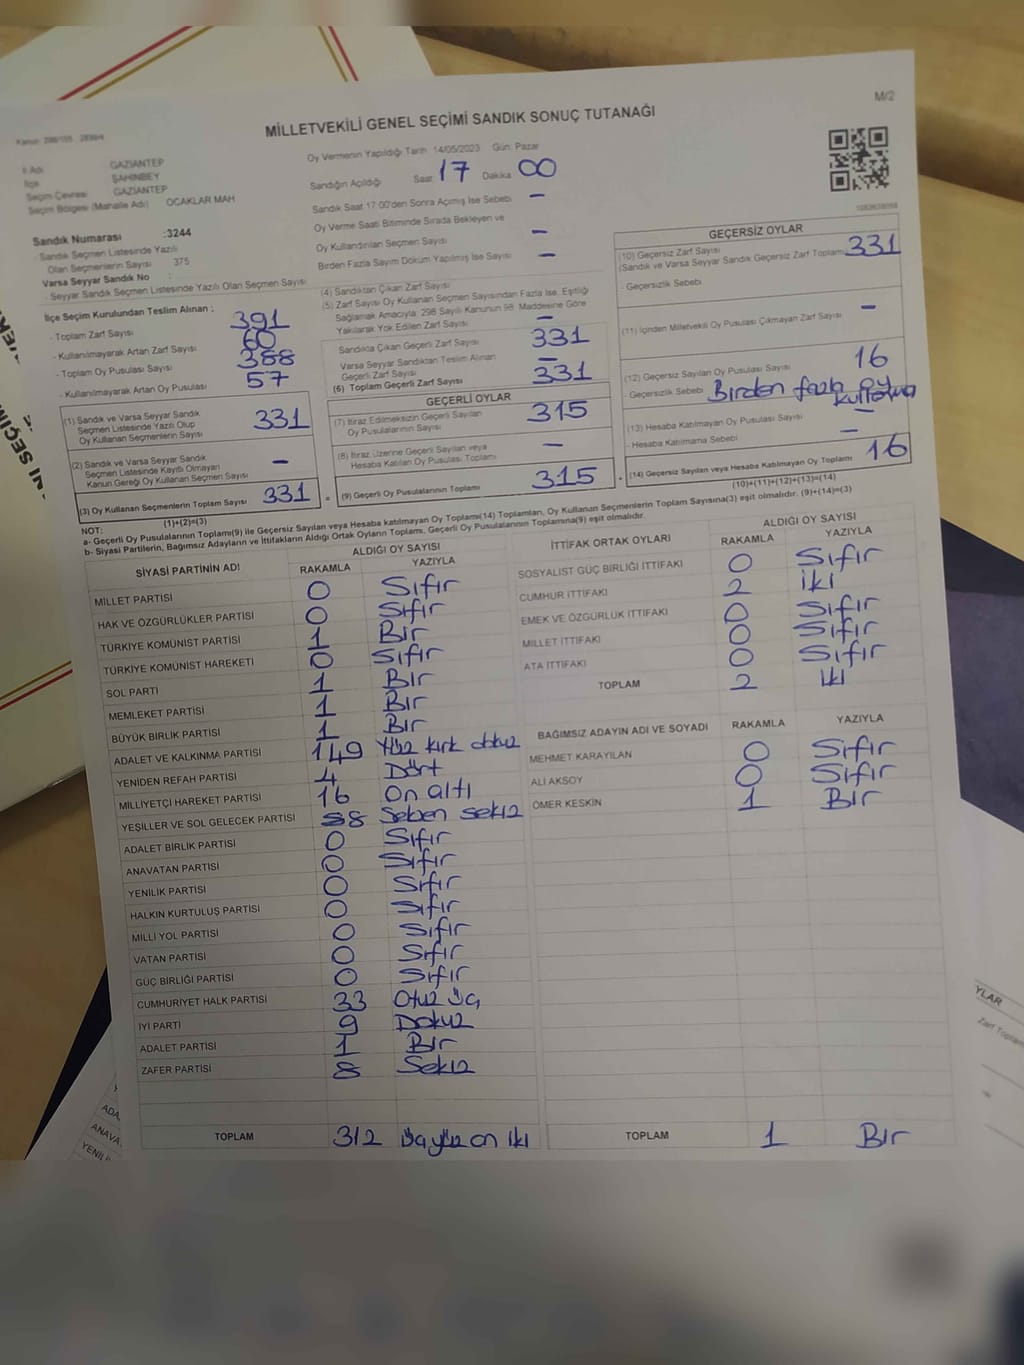 M/2
MİLLETVEKİLİ GENEL SEÇİMİ SANDIK SONUÇ TUTANAĞI
İl Adı GAZİANTEP
İlçe ŞAHİNBEY
Seçim Çevresi GAZİANTEP
Seçim Bölgesi (Mahalle Adı) OCAKLAR MAH
Sandık Numarası :3244
- Sandık Seçmen Listesinde Yazılı
Olan Seçmenlerin Sayısı 375
Varsa Seyyar Sandık No :
- Seyyar Sandık Seçmen Listesinde Yazılı Olan Seçmen Sayısı
Oy Vermenin Yapıldığı Tarih 14/05/2023 Gün: Pazar
Sandığın Açıldığı Saat 17 Dakika 00
Sandık Saat 17:00'den Sonra Açılmış İse Sebebi –
Oy Verme Saati Bitiminde Sırada Bekleyen ve
Oy Kullandırılan Seçmen Sayısı –
Birden Fazla Sayım Döküm Yapılmış İse Sayısı –
İlçe Seçim Kurulundan Teslim Alınan :
- Toplam Zarf Sayısı 391
- Kullanılmayarak Artan Zarf Sayısı 60
- Toplam Oy Pusulası Sayısı 388
- Kullanılmayarak Artan Oy Pusulası 57
(1) Sandık ve Varsa Seyyar Sandık
Seçmen Listesinde Yazılı Olup
Oy Kullanan Seçmenlerin Sayısı 331
(2) Sandık ve Varsa Seyyar Sandık
Seçmen Listesinde Kayıtlı Olmayan
Kanun Gereği Oy Kullanan Seçmen Sayısı –
(3) Oy Kullanan Seçmenlerin Toplam Sayısı 331
(1)+(2)=(3)
(4) Sandıktan Çıkan Zarf Sayısı
(5) Zarf Sayısı Oy Kullanan Seçmen Sayısından Fazla İse, Eşitliği
Sağlamak Amacıyla; 298 Sayılı Kanunun 98. Maddesine Göre
Yakılarak Yok Edilen Zarf Sayısı –
Sandıkta Çıkan Geçerli Zarf Sayısı 331
Varsa Seyyar Sandıktan Teslim Alınan
Geçerli Zarf Sayısı –
(6) Toplam Geçerli Zarf Sayısı 331
GEÇERLİ OYLAR
(7) İtiraz Edilmeksizin Geçerli Sayılan
Oy Pusulalarının Sayısı 315
(8) İtiraz Üzerine Geçerli Sayılan veya
Hesaba Katılan Oy Pusulası Toplamı –
= (9) Geçerli Oy Pusulalarının Toplamı 315
GEÇERSİZ OYLAR
(10) Geçersiz Zarf Sayısı
(Sandık ve Varsa Seyyar Sandık Geçersiz Zarf Toplamı) 331
- Geçersizlik Sebebi
(11) İçinden Milletvekili Oy Pusulası Çıkmayan Zarf Sayısı –
(12) Geçersiz Sayılan Oy Pusulası Sayısı 16
- Geçersizlik Sebebi Birden fazla oy kullanma
(13) Hesaba Katılmayan Oy Pusulası Sayısı –
- Hesaba Katılmama Sebebi
+ (14) Geçersiz Sayılan veya Hesaba Katılmayan Oy Toplamı 16
(10)+(11)+(12)+(13)=(14)
NOT:
a- Geçerli Oy Pusulalarının Toplamı(9) ile Geçersiz Sayılan veya Hesaba katılmayan Oy Toplamı(14) Toplamları, Oy Kullanan Seçmenlerin Toplam Sayısına(3) eşit olmalıdır. (9)+(14)=(3)
b- Siyasi Partilerin, Bağımsız Adayların ve İttifakların Aldığı Ortak Oyların Toplamı, Geçerli Oy Pusulalarının Toplamına(9) eşit olmalıdır.
SİYASİ PARTİNİN ADI ALDIĞI OY SAYISI
RAKAMLA YAZIYLA
MİLLET PARTİSİ 0 Sıfır
HAK VE ÖZGÜRLÜKLER PARTİSİ 0 Sıfır
TÜRKİYE KOMÜNİST PARTİSİ 1 Bir
TÜRKİYE KOMÜNİST HAREKETİ 0 Sıfır
SOL PARTİ 1 Bir
MEMLEKET PARTİSİ 1 Bir
BÜYÜK BİRLİK PARTİSİ 1 Bir
ADALET VE KALKINMA PARTİSİ 149 Yüz kırk dokuz
YENİDEN REFAH PARTİSİ 4 Dört
MİLLİYETÇİ HAREKET PARTİSİ 16 On altı
YEŞİLLER VE SOL GELECEK PARTİSİ 88 Seksen sekiz
ADALET BİRLİK PARTİSİ 0 Sıfır
ANAVATAN PARTİSİ 0 Sıfır
YENİLİK PARTİSİ 0 Sıfır
HALKIN KURTULUŞ PARTİSİ 0 Sıfır
MİLLİ YOL PARTİSİ 0 Sıfır
VATAN PARTİSİ 0 Sıfır
GÜÇ BİRLİĞİ PARTİSİ 0 Sıfır
CUMHURİYET HALK PARTİSİ 33 Otuz üç
İYİ PARTİ 9 Dokuz
ADALET PARTİSİ 1 Bir
ZAFER PARTİSİ 8 Sekiz
TOPLAM 312 Üçyüz on iki
İTTİFAK ORTAK OYLARI ALDIĞI OY SAYISI
RAKAMLA YAZIYLA
SOSYALİST GÜÇ BİRLİĞİ İTTİFAKI 0 Sıfır
CUMHUR İTTİFAKI 2 iki
EMEK VE ÖZGÜRLÜK İTTİFAKI 0 Sıfır
MİLLET İTTİFAKI 0 Sıfır
ATA İTTİFAKI 0 Sıfır
TOPLAM 2 iki
BAĞIMSIZ ADAYIN ADI VE SOYADI RAKAMLA YAZIYLA
MEHMET KARAYILAN 0 Sıfır
ALİ AKSOY 0 Sıfır
ÖMER KESKİN 1 Bir
TOPLAM 1 Bir